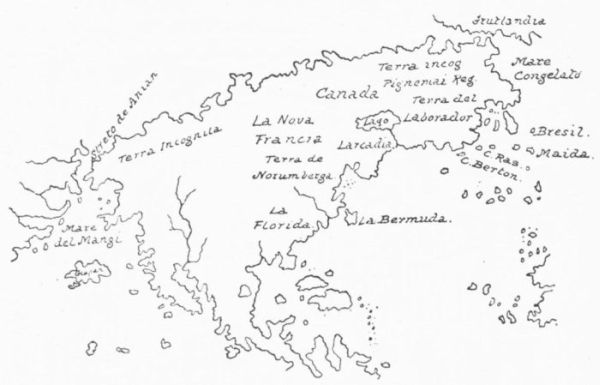 Grutlandia
Mare
Congelato
Terra incog
Pignemai Reg.
Canada
Terra del
Laborador
Streto de Anian
Terra Incognita
La Nova
Francia
Lago
Larcadia
Bresil.
Maida.
C. Ras.
C. Berton.
Terra de
Norumberga
La
Florida
La Bermuda.
Mare
del Mangi